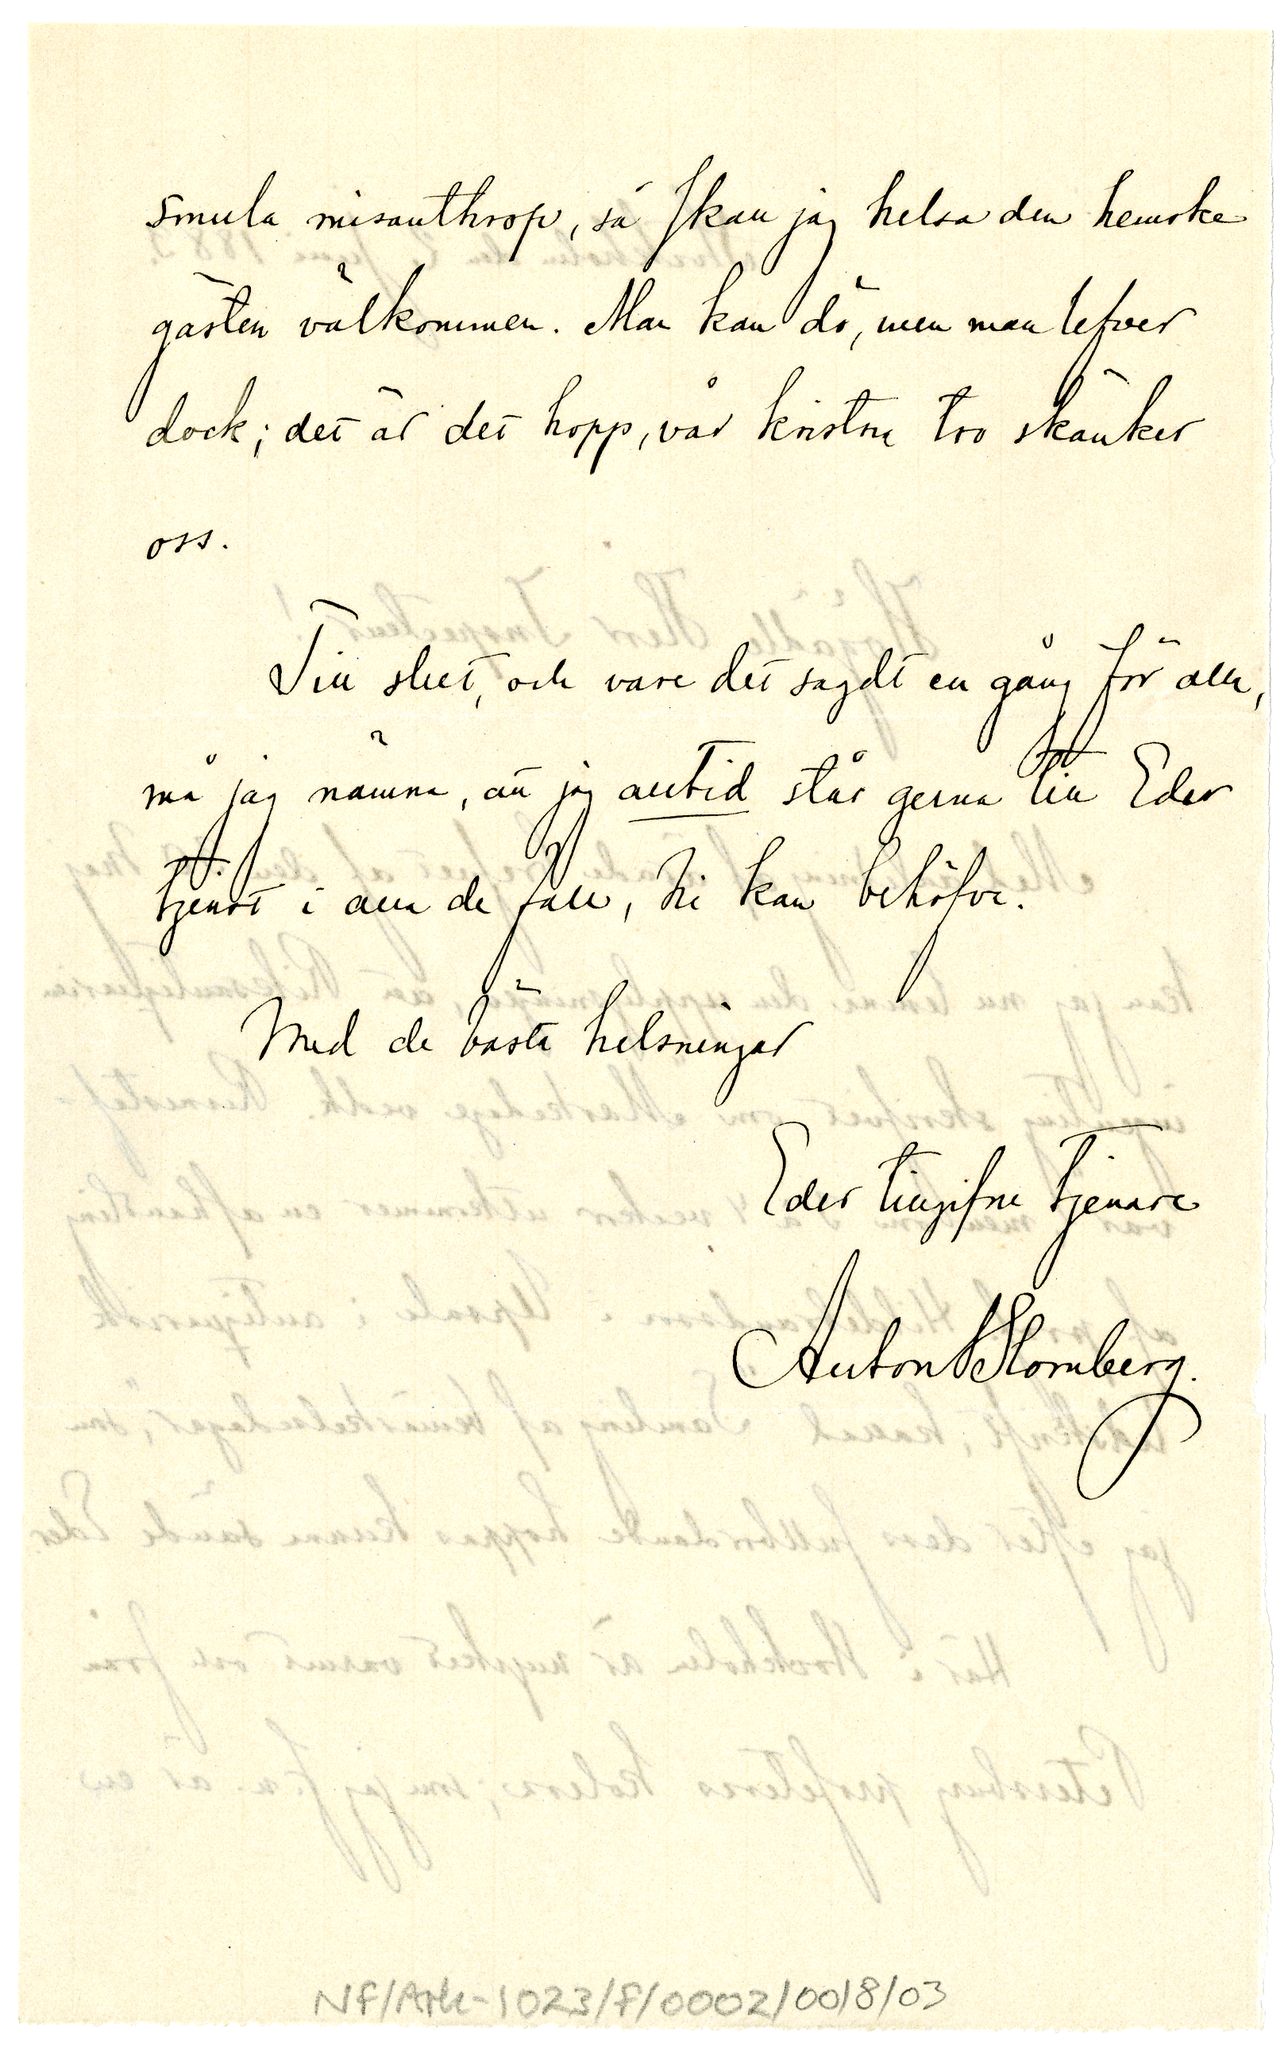 smula misanthrop, så skall jag helsa den hemske
gästen välkommen. Man kan dö, men man lefver
dock; det är det hopp, vår kristna tro skänker
oss.
Till slut, och vare det sagdt en gång för alla,
må jag nämna, att jag alltid står gerna till Eder
tjenst i alla de fall, Ni kan behöfva.
Med de bästa helsningar
Eder tillgifne tjenare
Anton Blomberg.
NF/Ark-1023/F/0002/0018/03